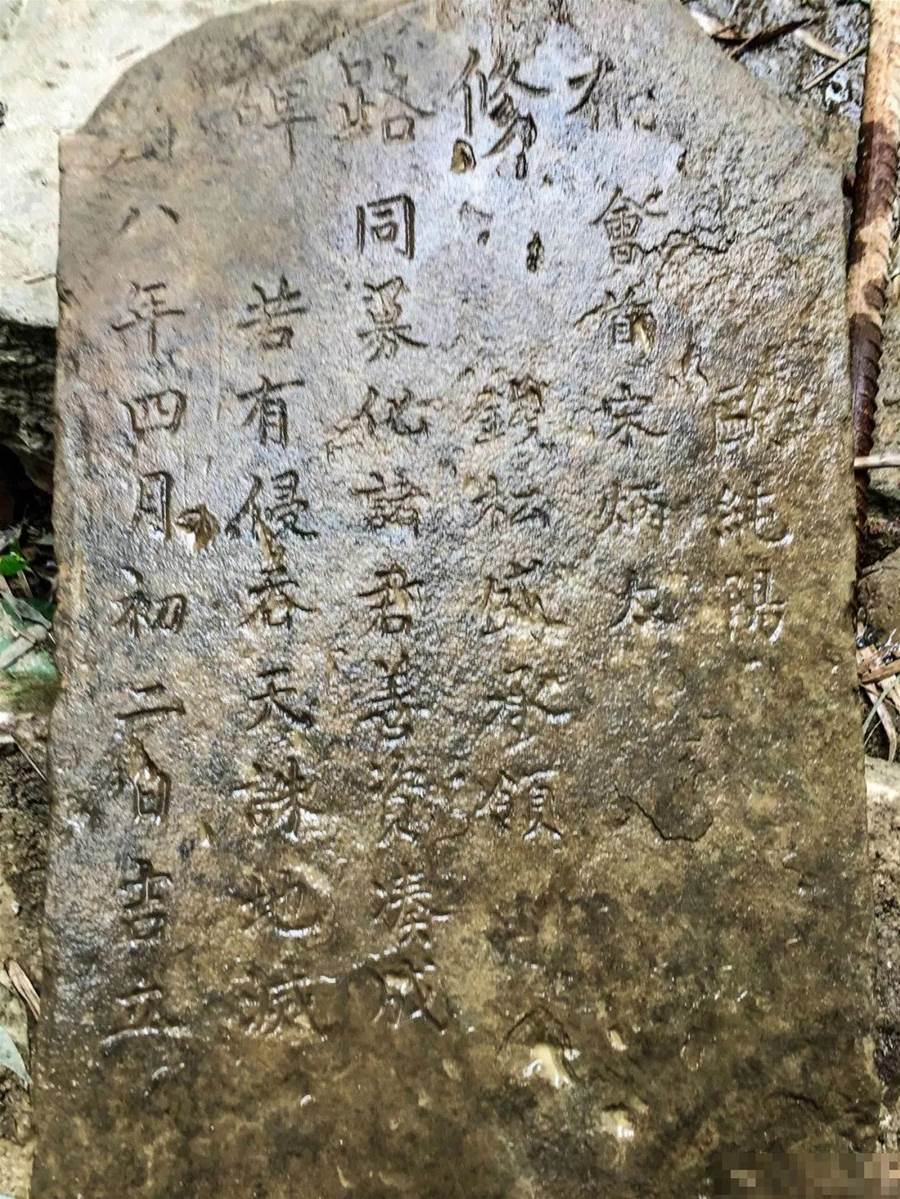 純陽
會首宋炳
修松盛承領
路同募化諸君善資湊成
碑若有侵吞天誅地滅
八年四月初二日吉立